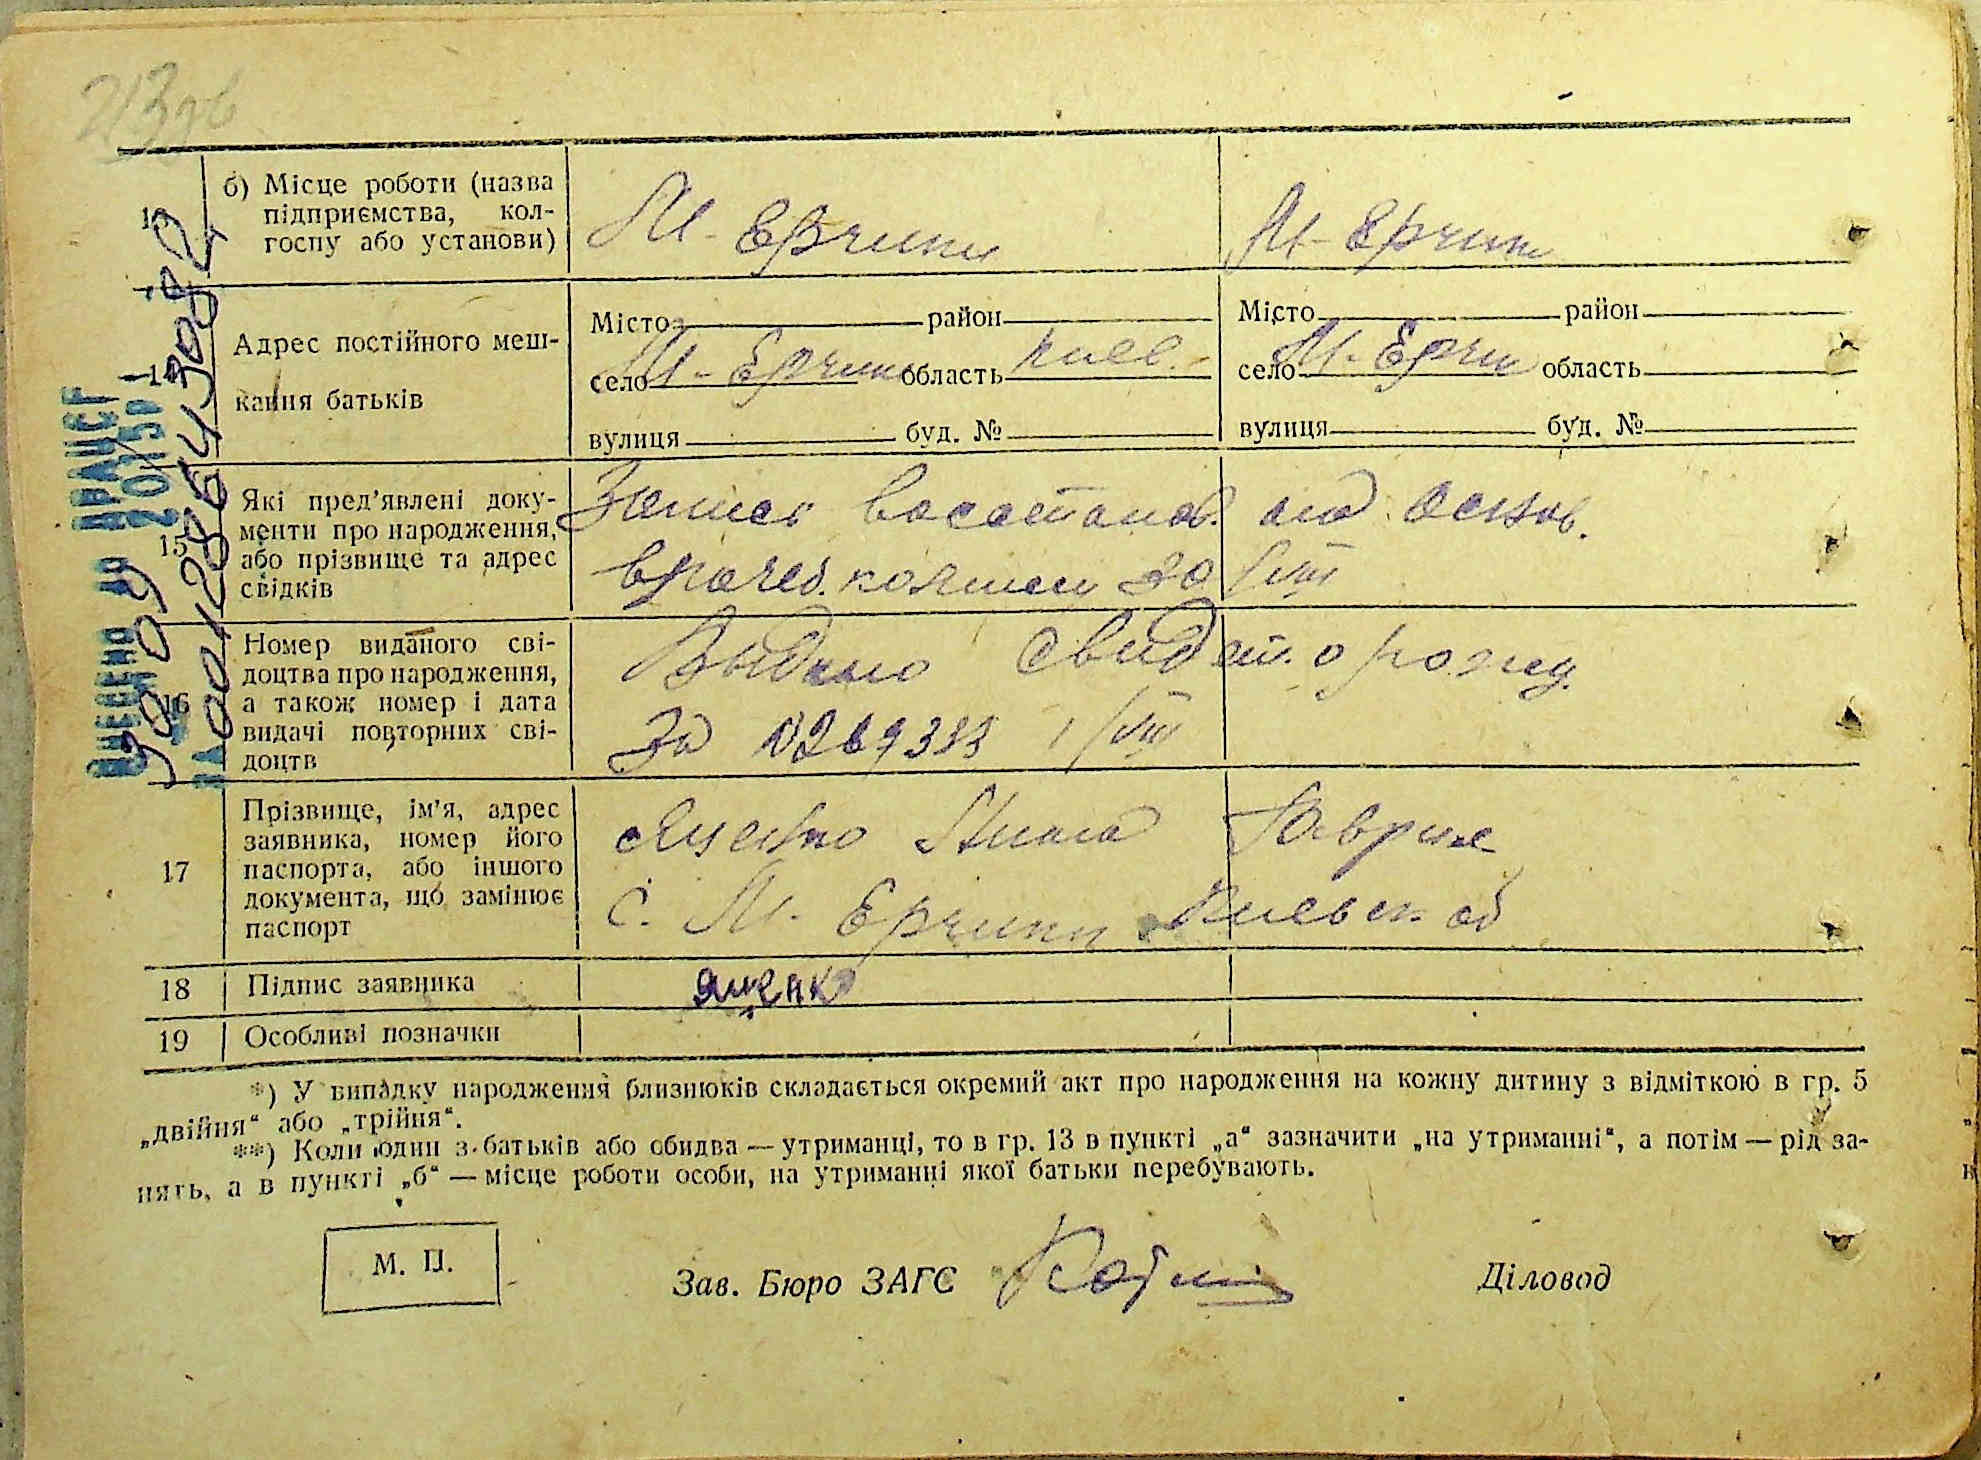 213 зв
13 б) Місце роботи (назва
підприємства, кол-
госпу або установи)
М-Ерчики
М-Ерчик
14 Адрес постійного меш-
кання батьків
Місто район
село М-Ерчики область Киев.
вулиця буд. №
Місто район
село М-Ерчи область
вулиця буд. №
15 Які пред’явлені доку-
менти про народження,
або прізвище та адрес
свідків
врачеб. 30/VIII
16 Номер виданого сві-
доцтва про народження,
а також номер і дата
видачі повторних сві-
доцтв
Выдано свидет. о рожд.
За 1/VIII
17 Прізвище, ім’я, адрес
заявника, номер його
паспорта, або іншого
документа, що замінює
паспорт
Ященко Гаврил
с. М. Ерчики Киевск об
18 Підпис заявника
Ященко
19 Особливі позначки
*) У випадку народження близнюків складається окремий акт про народження на кожну дитину з відміткою в гр. 5
„двійня“ або „трійня“.
**) Коли один з батьків або обидва — утриманці, то в гр. 13 в пункті „а“ зазначити „на утриманні“, а потім — рід за-
нять, а в пункті „б“ — місце роботи особи, на утриманні якої батьки перебувають.
М. П.
Зав. Бюро ЗАГС
Діловод
ВНЕСЕНО ДО ДРАЦСГ
30 09 2015р
ЗА 00128643082